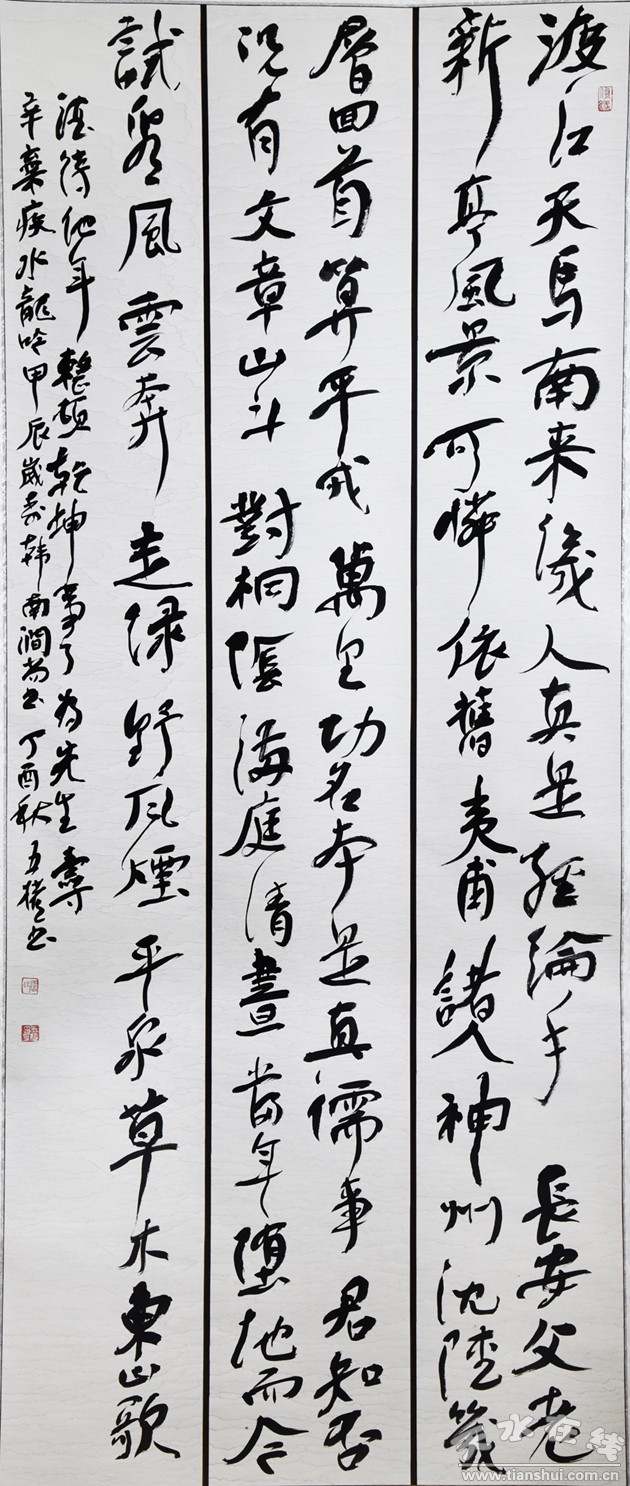 渡江天馬南来幾人真是經綸手長安父老
新亭風景可憐依舊夷甫諸人神州沈陸幾
曾回首算平戎萬里功名本是真儒事君知否
況有文章山斗對桐陰满庭清晝當年墮地而今
試看風雲奔走绿野风煙平泉草木東山歌
酒待他年整頓乾坤事了為先生壽
辛棄疾水龍吟甲辰歲壽韩南澗尚书丁酉秋五书
天水在线
www.tianshui.com.cn